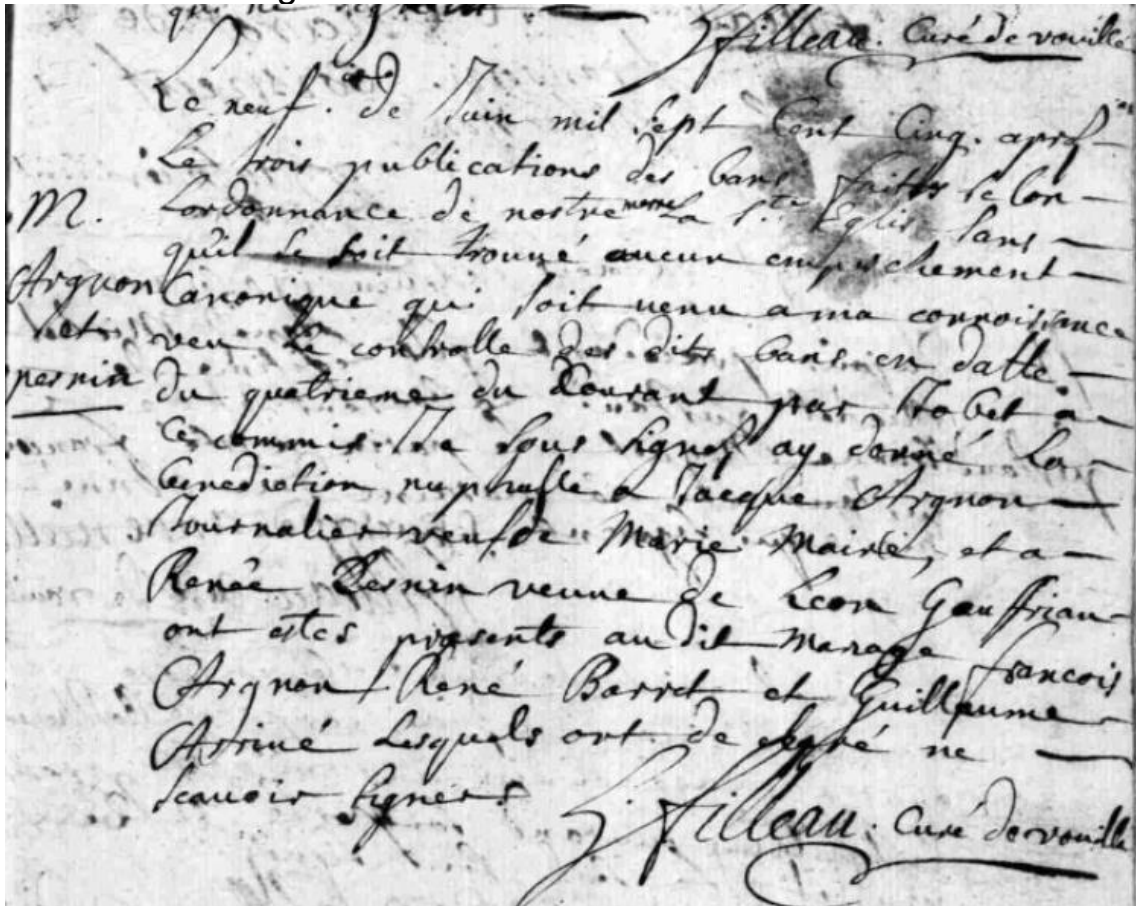 qui ne
J filleau. Curé de vouillé
Le neuf.e de Juin mil sept Cent Cinq. apres
Le trois publications des bans faittes selon
Lordonnance de nostre mere La S.te Eglise sans
M.
quil se soit trouué aucun empeschement
Argnon
Canonique qui soit venu a ma connoissance
et
veu Le controlle des dits bans en datte
pernin
du quatrieme du Courant par
ce commis Je sous signé ay donné La
benediction nuptialle a Jacque Argnon
Journalier veuf de Marie Mairé, et a
Renée Pernin veuue de Leon Gauffriau
ont estes presents au dit Mariage francois
Argnon René Barret et Guillaume
lesquels ont de claré ne
scauoir signer.
J. filleau. Curé de vouillé